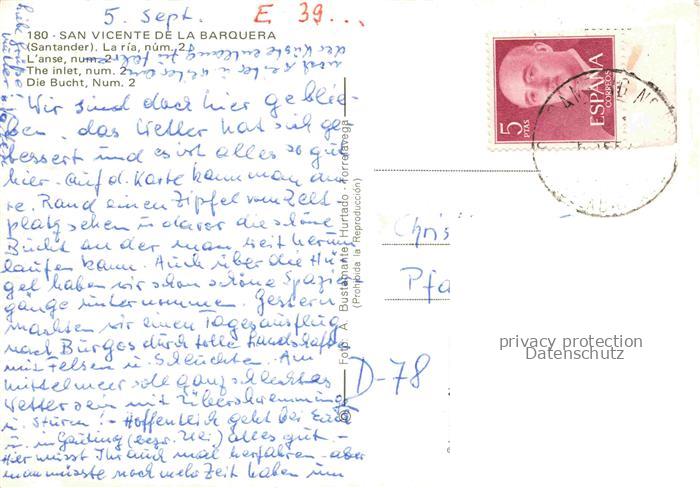 5. Sept. E 39...
180 - SAN VICENTE DE LA BARQUERA
(Santander). La ría, núm. 2
L'anse, num. 2
The inlet, num. 2
Die Bucht, Num. 2
Wir sind doch hier geblie-
ben, das Wetter hat sich ge-
bessert und es ist alles so gut
hier. Auf d. Karte kann man am
re. Rand einen Zipfel vom Zelt-
platz sehen u. davor die schöne
Bucht an der man weit herum
laufen kann. Auch über die Hü-
gel haben wir schon schöne Spazier
gänge unternommen. Gestern
machten wir einen Tagesausflug
nach Burgos durch tolle Landschaften
mit Felsen u. Schluchten. Am
Mittelmeer soll ganz schlechtes
Wetter sein mit Überschwemmung
u. Sturm! - Hoffentlich geht bei Euch
u. in Gauting (bezw. Uli) alles gut. -
Hier müsst Ihr auch mal herfahren - aber
man müsste noch mehr Zeit haben um
Foto: A. Bustamante Hurtado - Torrelavega
(Prohibida la Reproducción)
5
PTAS
ESPAÑA
CORREOS
Chris
Pfa
D-78
privacy protection
Datenschutz